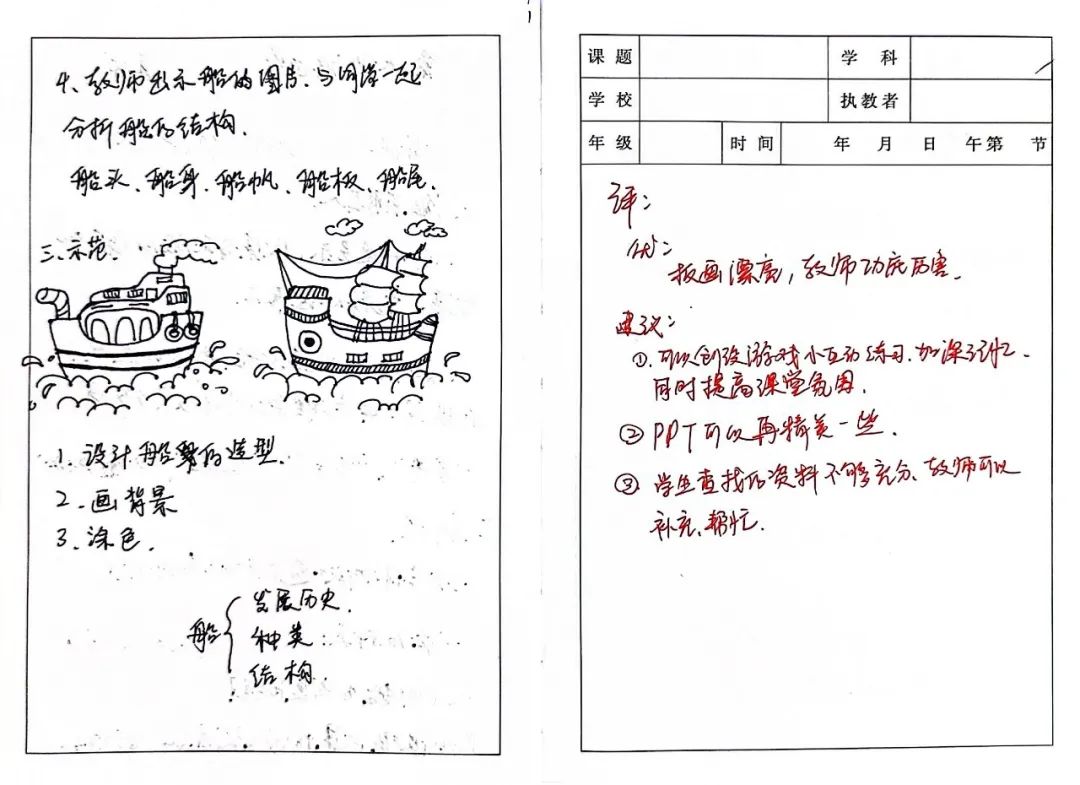 4、教师出示船的图片、与同学一起
分析船的结构.
船头、船身、船帆、船板、船尾.
三、示范.
1. 设计船的造型.
2. 画背景
3. 涂色.
船
发展历史.
种类
结构.
课题 学科
学校 执教者
年级 时间 年 月 日 午第 节
评：
优：
板画漂亮，教师功底厉害.
建议：
①. 可以创设游戏小互动练习、加深记忆.
同时提高课堂氛围.
② PPT可以再精美一些.
③. 学生查找的资料不够充分、教师可以
补充、帮忙.